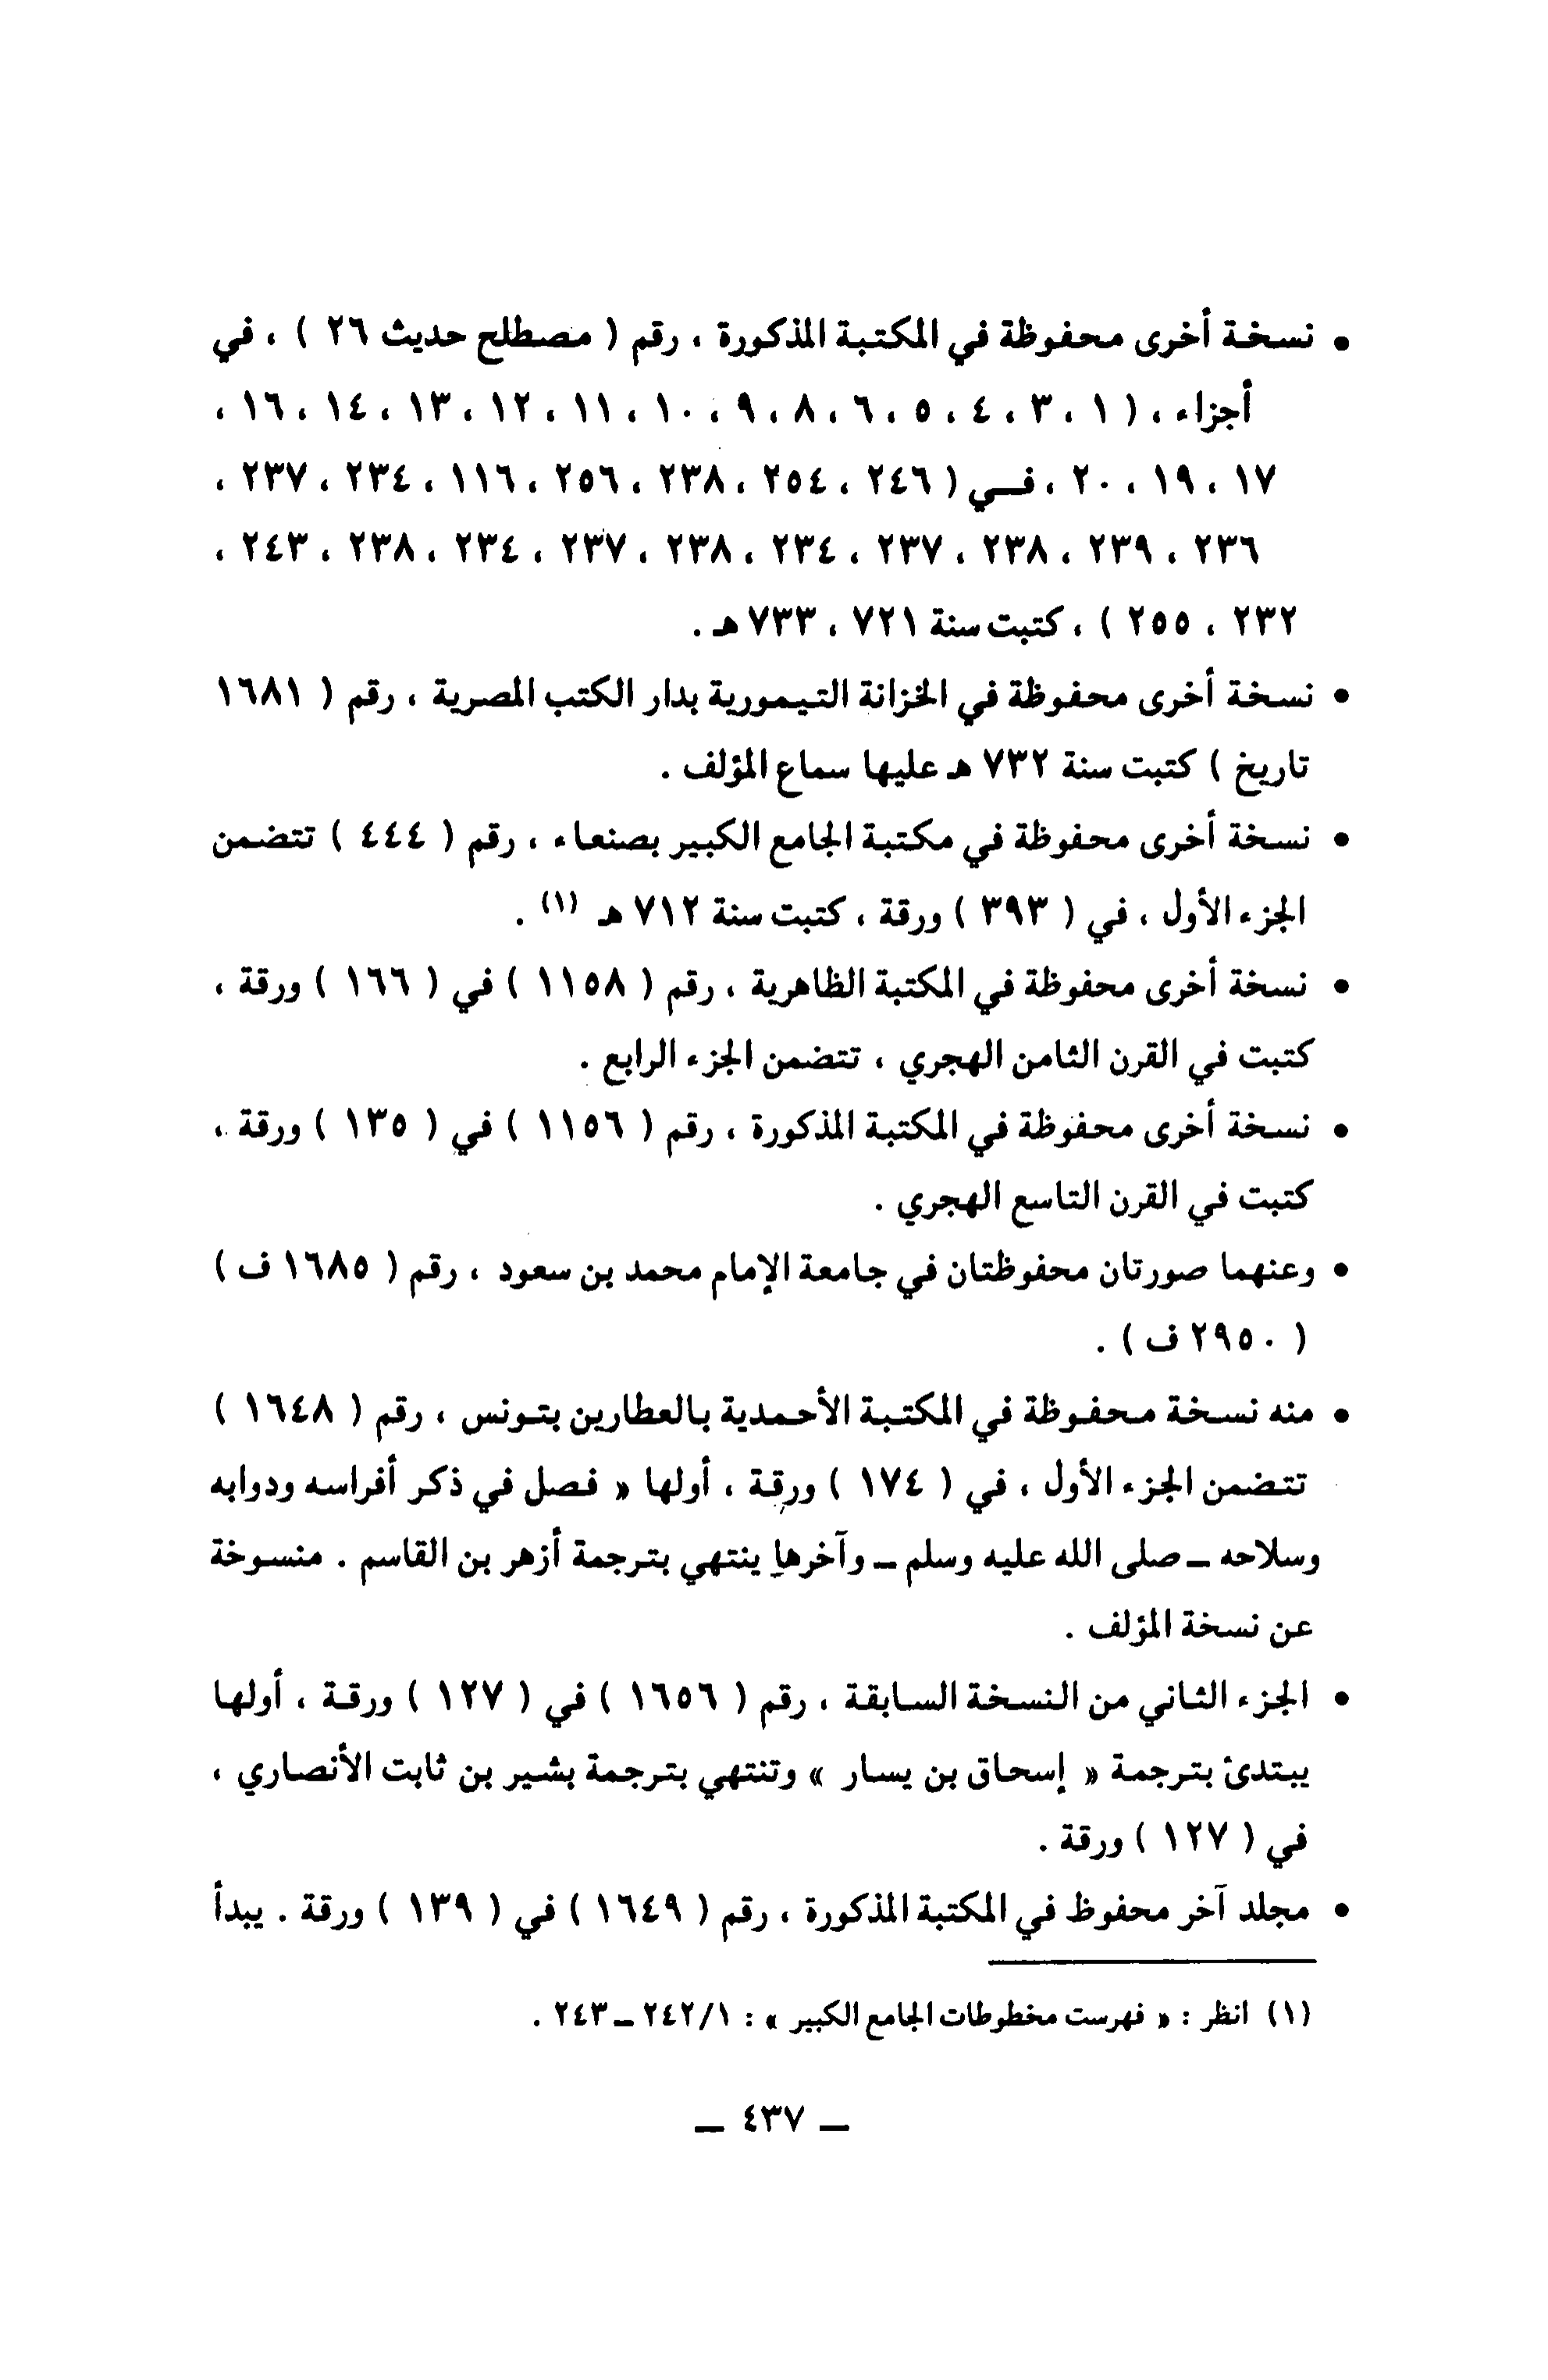 • نسخة أخرى محفوظة في المكتبة المذكورة ، رقم ( مصطلح حديث ٢٦ ) ، في
أجزاء ، ( ١ ، ٣ ، ٤ ، ٥ ، ٦ ، ٨ ، ٩ ، ١٠ ، ١١ ، ١٢ ، ١٣ ، ١٤ ، ١٦ ،
١٧ ، ١٩ ، ٢٠ ، فـي ( ٢٤٦ ، ٢٥٤ ، ٢٣٨ ، ٢٥٦ ، ١١٦ ، ٢٣٤ ، ٢٣٧ ،
٢٣٦ ، ٢٣٩ ، ٢٣٨ ، ٢٣٧ ، ٢٣٤ ، ٢٣٨ ، ٢٣٧ ، ٢٣٤ ، ٢٣٨ ، ٢٤٣ ،
٢٣٢ ، ٢٥٥ ) ، كتبت سنة ٧٢١ ، ٧٣٣ هـ .
• نسخة أخرى محفوظة في الخزانة التيمورية بدار الكتب المصرية ، رقم ( ١٦٨١
تاريخ ) كتبت سنة ٧٣٢ هـ عليها سماع المؤلف .
• نسخة أخرى محفوظة في مكتبة الجامع الكبير بصنعاء ، رقم ( ٤٤٤ ) تتضمن
الجزء الأول ، في ( ٣٩٣ ) ورقة ، كتبت سنة ٧١٢ هـ (١) .
• نسخة أخرى محفوظة في المكتبة الظاهرية ، رقم ( ١١٥٨ ) في ( ١٦٦ ) ورقة ،
كتبت في القرن الثامن الهجري ، تتضمن الجزء الرابع .
• نسخة أخرى محفوظة في المكتبة المذكورة ، رقم ( ١١٥٦ ) في ( ١٣٥ ) ورقة ،
كتبت في القرن التاسع الهجري .
• وعنهما صورتان محفوظتان في جامعة الإمام محمد بن سعود ، رقم ( ١٦٨٥ ف )
( ٢٩٥٠ ف ) .
• منه نسخة محفوظة في المكتبة الأحمدية بالعطارين بتونس ، رقم ( ١٦٤٨ )
تتضمن الجزء الأول ، في ( ١٧٤ ) ورقة ، أولها « فصل في ذكر أفراسه ودوابه
وسلاحه ـ صلى الله عليه وسلم ـ وآخرها ينتهي بترجمة أزهر بن القاسم . منسوخة
عن نسخة المؤلف .
• الجزء الثاني من النسخة السابقة ، رقم ( ١٦٥٦ ) في ( ١٢٧ ) ورقة ، أولها
يبتدئ بترجمة « إسحاق بن يسار » وتنتهي بترجمة بشير بن ثابت الأنصاري ،
في ( ١٢٧ ) ورقة .
• مجلد آخر محفوظ في المكتبة المذكورة ، رقم ( ١٦٤٩ ) في ( ١٣٩ ) ورقة . يبدأ
(١) انظر : « فهرست مخطوطات الجامع الكبير » : ٢٤٢/١ ـ ٢٤٣ .
ـ ٤٣٧ ـ